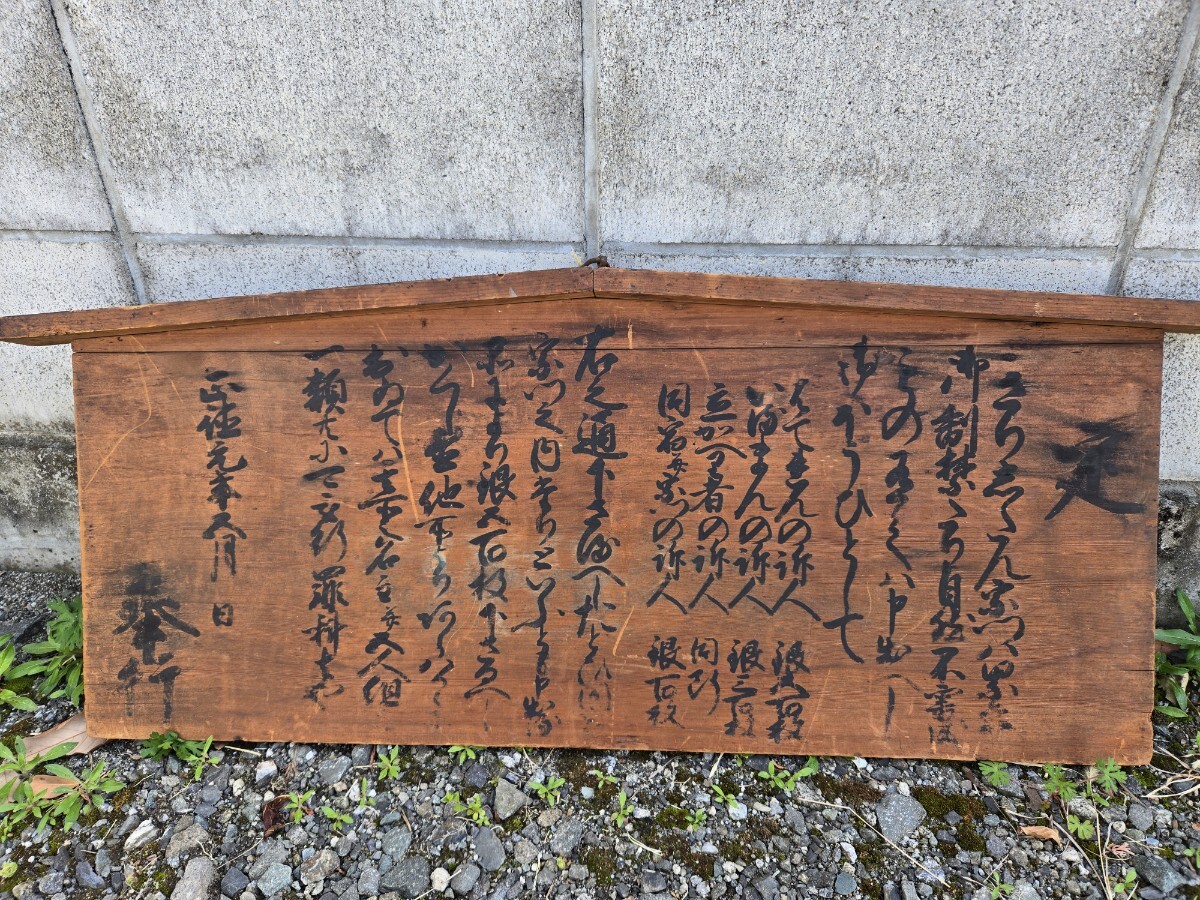 定
一きりしたん宗門ハ累年
御制禁たり自然不審成
ものあらハ申出へし
御ほうひとして
はてれんの訴人 銀五百枚
いるまんの訴人 銀三百枚
立かへり者の訴人 同断
同宿并宗門の訴人 銀百枚
右之通下さるへしたとひ同
宗門之内たりといふとも申出る
品により銀五百枚下さるへし
かくし置他所よりあらハるゝに
おゐてハ其所之名主并五人組
一類共に可被行罪科者也
正徳元年五月 日
奉行